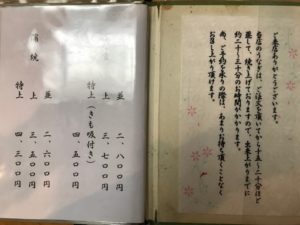 ご来店ありがとうございます。
当店のうなぎは、ご注文を頂いてから
蒸して、焼き上げておりますので、出来上がりまでに
約二十~三十分のお時間がかかります。
尚、ご予約を承りの際は、あまりお待ち頂くことなく
お召し上がり頂けます。
並 二、八〇〇円
上 三、七〇〇円
特上(きも吸付き) 四、五〇〇円
蒲焼
並 二、六〇〇円
上 三、五〇〇円
特上 四、三〇〇円